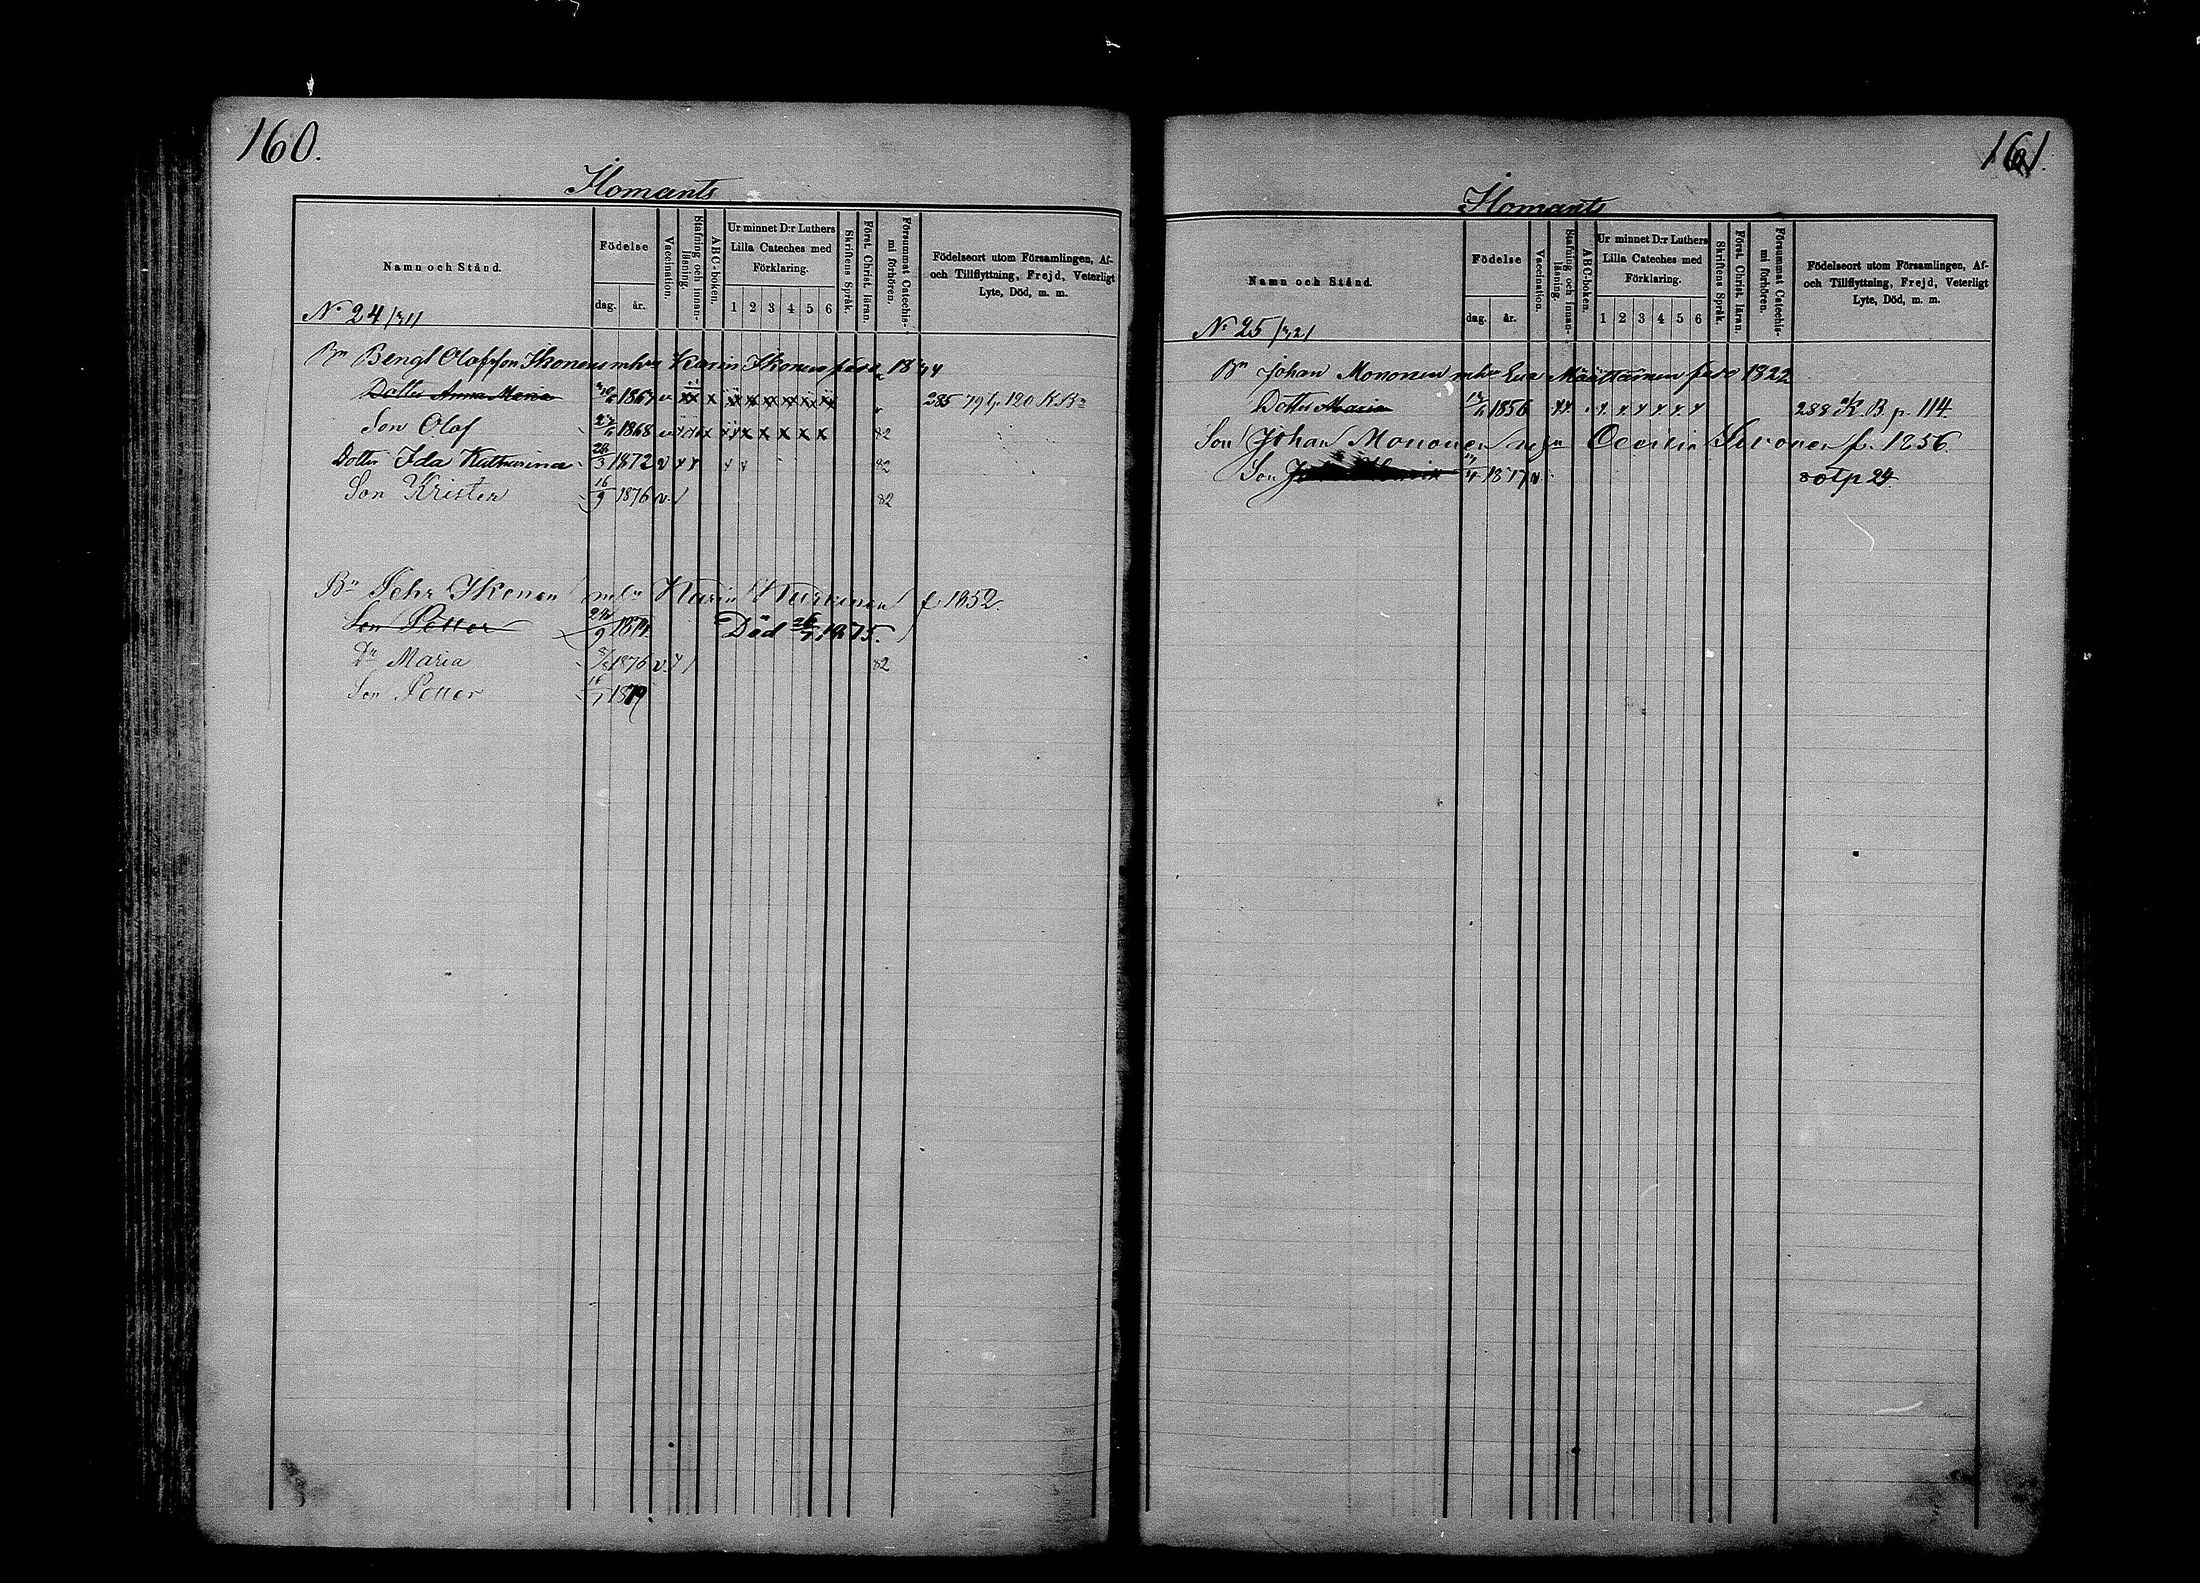 160.
Ilomants
Namn och Stånd.
Födelse
dag. år.
Vaccination.
Stafning och innanläsning.
ABC-boken.
Ur minnet D:r Luthers Lilla Cateches med Förklaring.
1 2 3 4 5 6
Skriftens Språk.
Först. Christ. läran.
Försummat Catechismi förhören.
Födelseort utom Församlingen, Af- och Tillflyttning, Frejd, Veterligt Lyte, Död, m. m.
N° 24/31
Bn Bengt Olofsson Ikonens mhu Karin Ikonen född 1844
Dotter Anna Maria 1867 v 285 79 120 K.B.
Son Olof 1868 82
Dotter Ida Katharina 1872 v 82
Son Krister 16/9 1876 v 82
Bn Pehr Ikonen mhu Karin Kurkinen f 1852.
Son Petter 24/9 1874 Död 1875.
Dr Maria 1876 v. 82
Son Petter 16/7 1879
161.
Ilomants
Namn och Stånd.
Födelse
dag. år.
Vaccination.
Stafning och innanläsning.
ABC-boken.
Ur minnet D:r Luthers Lilla Cateches med Förklaring.
1 2 3 4 5 6
Skriftens Språk.
Först. Christ. läran.
Försummat Catechismi förhören.
Födelseort utom Församlingen, Af- och Tillflyttning, Frejd, Veterligt Lyte, Död, m. m.
N° 25/32
Bn Johan Mononen mhu Eva Määttänen född 1822
Dotter Maria 1856 288 K. B. p. 114
Son Johan Mononen Cecilia Sivonen f. 1856.
Son 1877 v. p 24